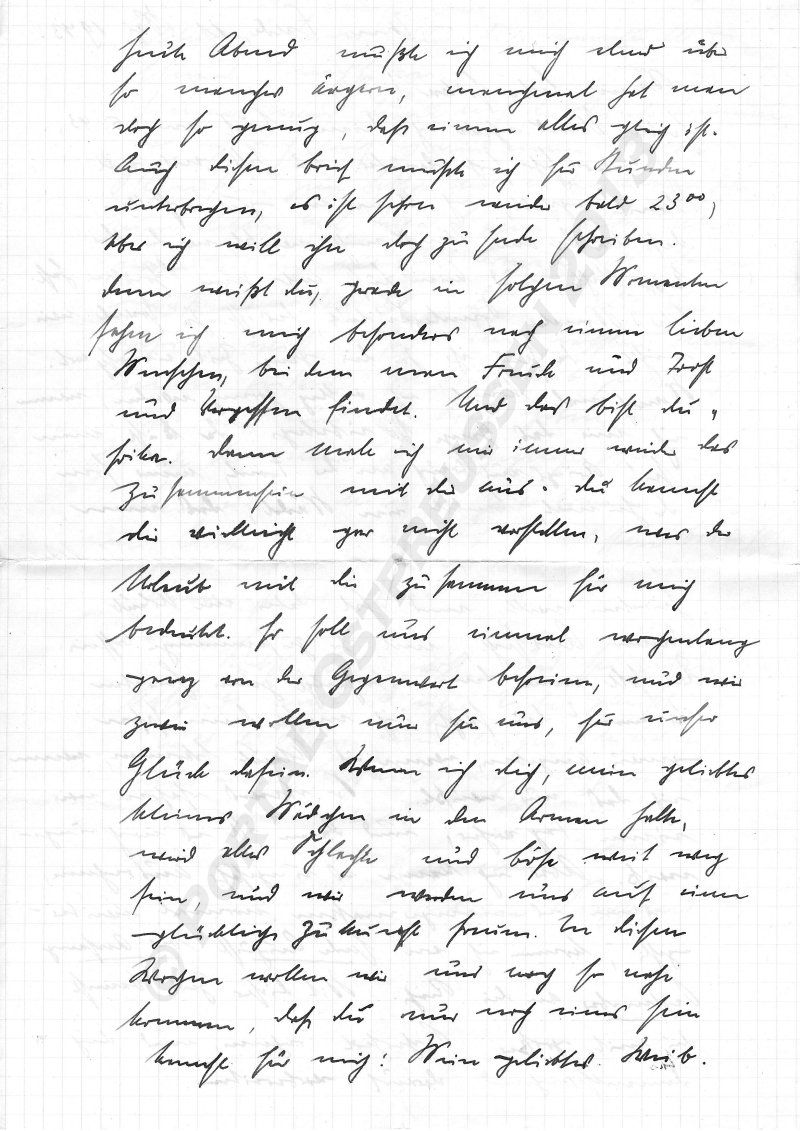 heute Abend mußte ich mich eben über
so manches ärgern, manchmal hat man
doch so genug, daß einem alles gleich ist.
Auch diesen Brief mußte ich für Stunden
unterbrechen, es ist schon wieder bald 23⁰⁰,
aber ich will ihn doch zu Ende schreiben.
denn weißt du, gerade in solchen Momenten
sehne ich mich besonders nach einem lieben
Menschen, bei dem man Freude und Trost
und Vergessen findet. Und das bist du,
Erika. Dann male ich mir immer wieder das
Zusammensein mit dir aus. Du kannst
dir vielleicht gar nicht vorstellen, was der
Urlaub mit dir zusammen für mich
bedeutet. Er soll uns einmal wochenlang
ganz von der Gegenwart befreien, und wir
zwei wollen nur für uns, für unser
Glück dasein. Wenn ich dich, mein geliebtes
kleines Mädchen in den Armen halte,
wird alles Schlechte und böse weit weg
sein, und wir werden uns auf eine
glückliche Zukunft freuen. In diesen
Wochen wollen wir uns noch so nahe
kommen, daß du nur noch eines sein
kannst für mich: Mein geliebtes Weib.
© PORTAL OSTPREUSSEN 2013